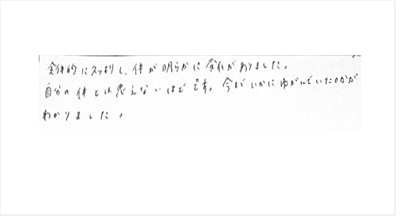 全体的にスッキリし、体が明らかに変化がありました。
自分の体とは思えないほどです。今までいかにゆがんでいたのかが
わかりました。